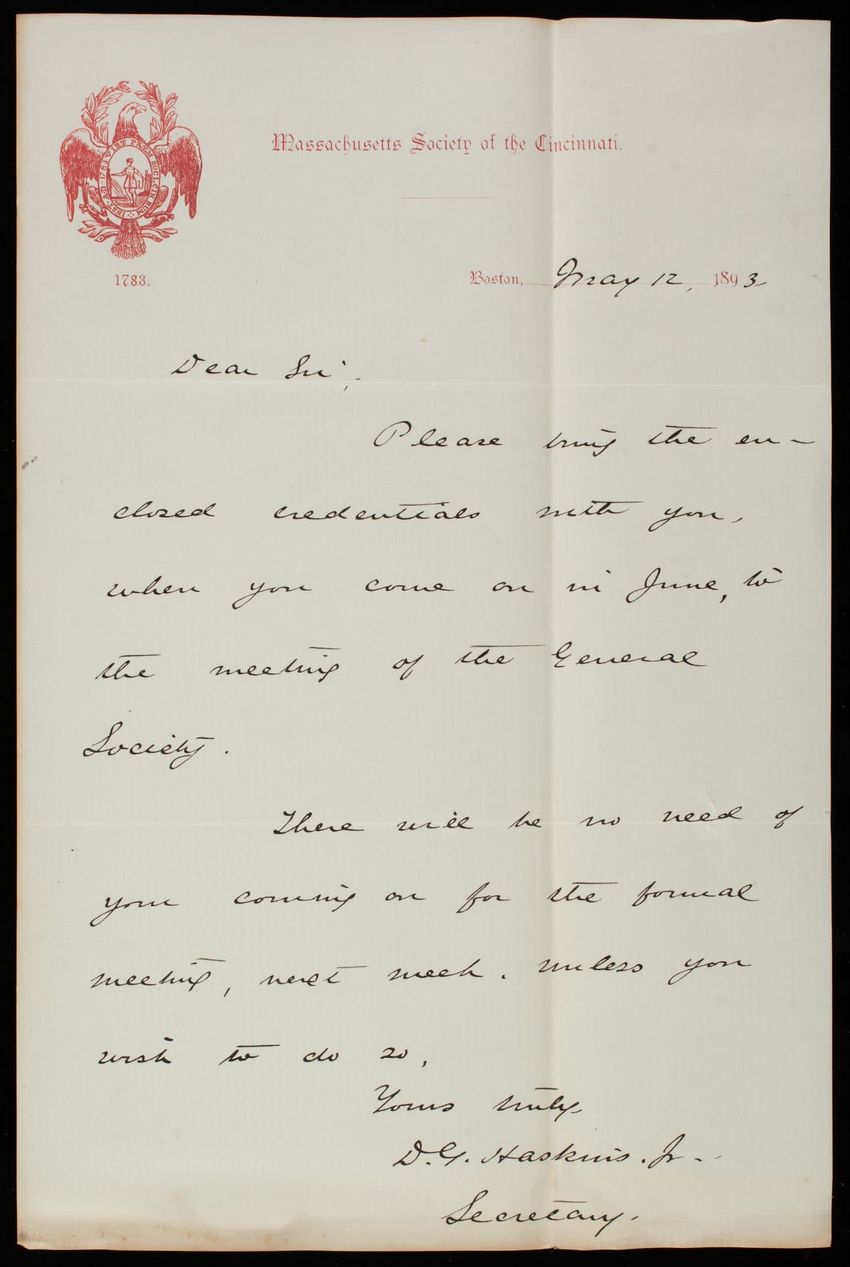 Massachusetts Society of the Cincinnati.
1783.
Boston, May 12, 1893
Dear Sir,
Please bring the en-
closed credentials with you,
when you come on in June, to
the meeting of the General
Society.
There will be no need of
your coming on for the formal
meeting, next week. unless you
wish to do so,
Yours truly
D. G. Haskins. Jr.
Secretary.